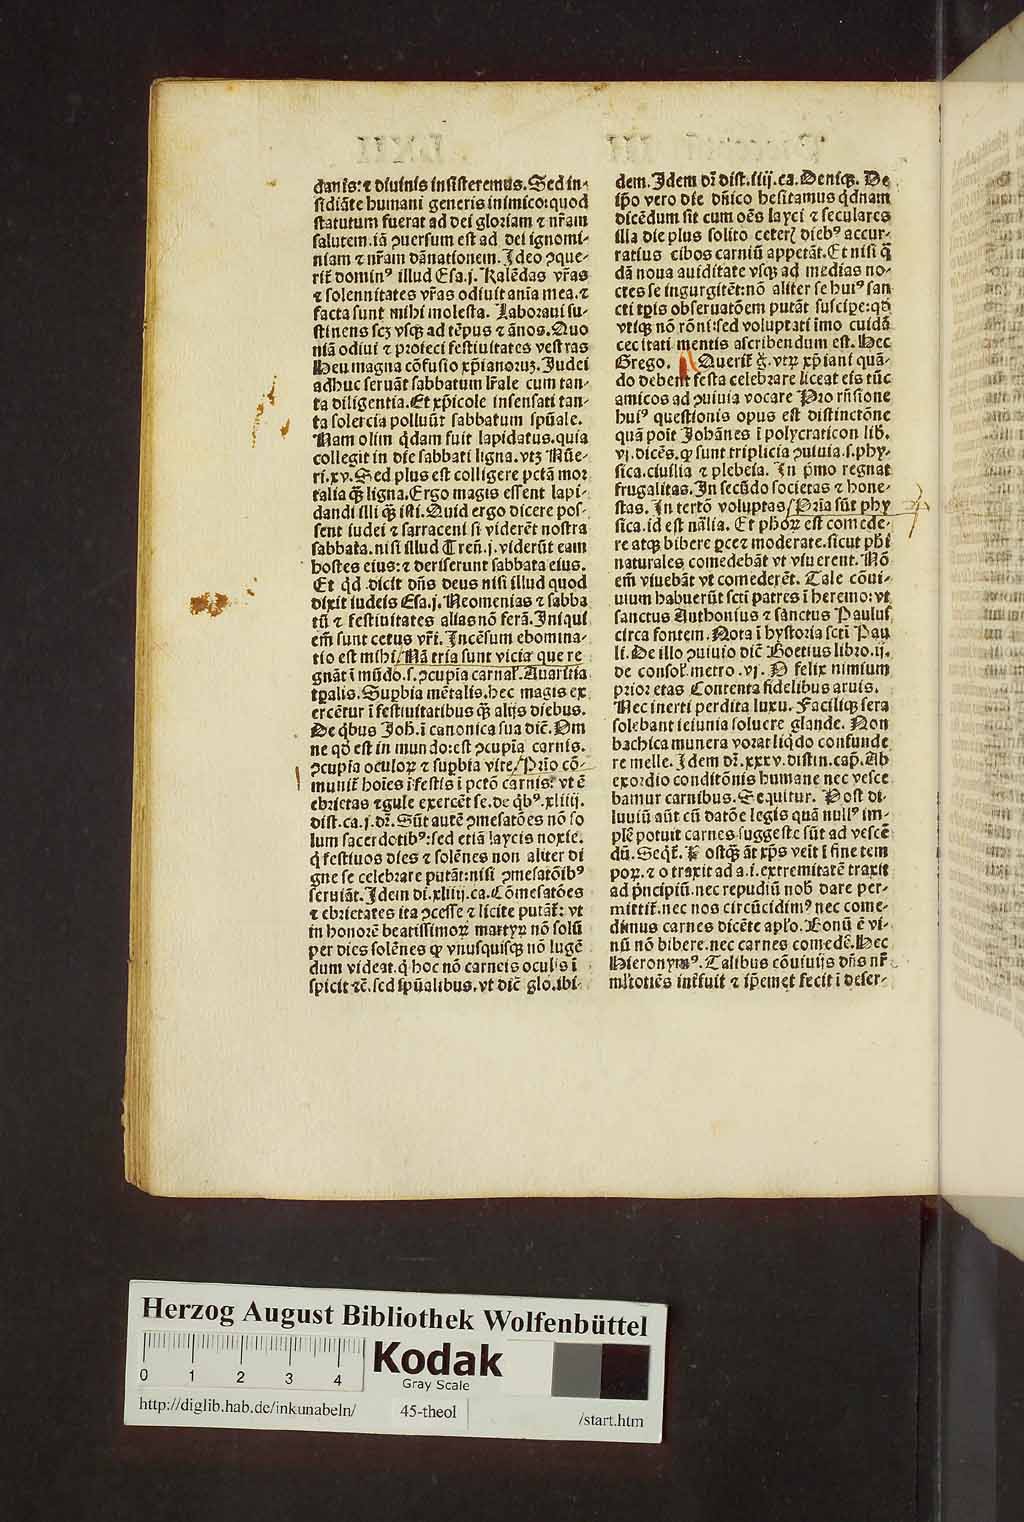 danis: ⁊ diuinis insisteremus. Sed in-
sidiãte humani generis inimico: quod
statutum fuerat ad dei gloriam ⁊ nr̃am
salutem. iã ꝯuersum est ad dei ignomi-
niam ⁊ nr̃am dãnationem. Ideo ꝯque-
rit̃ dominꝰ illud Esa. j. Kalẽdas vr̃as
⁊ solennitates vr̃as odiuit anĩa mea. ⁊
facta sunt mihi molesta. Laboraui su-
stinens scꝫ vsqꝫ ad tẽpus ⁊ ãnos. Quo
niã odiui ⁊ proieci festiuitates vestras
Heu magna cõfusio xp̃ianoruꝫ. Judei
adhuc seruãt sabbatum lr̃ale cum tan-
ta diligentia. Et xp̃icole insensati tan-
ta solercia polluũt sabbatum spũale.
Nam olim q̃dam fuit lapidatus. quia
collegit in die sabbati ligna. vtꝫ Nũe-
ri. xv. Sed plus est colligere pctã mor
talia qꝫ̃ ligna. Ergo magis essent lapi-
dandi illi qꝫ̃ isti. Quid ergo dicere pos-
sent iudei ⁊ sarraceni si viderẽt nostra
sabbata. nisi illud Treñ. j. viderũt eam
hostes eius: ⁊ deriserunt sabbata eius.
Et qd̃ dicit dñs deus nisi illud quod
dixit iudeis Esa. j. Neomenias ⁊ sabba
tũ ⁊ festiuitates alias nõ ferã. Iniqui
em̃ sunt cetus vr̃i. Incẽsum ebomina-
tio est mihi / Nã tria sunt vicia que re
gnãt ĩ mũdo. s. ꝯcupĩa carnaľ. Auaritia
tp̃alis. Suꝑbia mẽtalis. hec magis ex
ercẽtur ĩ festiuitatibus qꝫ̃ alijs diebus.
De qͥbus Joh̃. ĩ canonica sua dic̃. Om
ne qd̃ est in mundo: est ꝯcupĩa carnis.
ꝯcupĩa oculoꝝ ⁊ suꝑbia vite. / Prĩo cõ-
munit̃ hoĩes ĩ festis ĩ pctõ carnis. vt ẽ
ebrietas ⁊ gule exercẽt se. de qͥbꝰ. xliiij.
dist. ca. j. dr̃. Sũt autẽ ꝯmesatões nõ so
lum sacerdotibꝰ: sed etiã laycis noxie.
q̃ festiuos dies ⁊ solẽnes non aliter di
gne se celebrare putãt: nisi ꝯmesatõibꝰ
seruiãt. Idem di. xliiij. ca. Cõmesatões
⁊ ebrietates ita ꝯcesse ⁊ licite putãt̃: vt
in honorẽ beatissimoꝝ martyꝝ nõ solũ
per dies solẽnes qꝫ vnusquisqꝫ nõ lugẽ
dum videat. q̃ hoc nõ carneis oculis ĩ
spicit ⁊c̃. sed spũalibus. vt dic̃ glo. ibi-
dem. Idem dr̃ dist. iiij. ca. Deniqꝫ. De
ip̃o vero die dñico hesitamus q̃dnam
dicẽdum sit cum oẽs layci ⁊ seculares
illa die plus solito ceteris diebꝰ accur-
ratius cibos carniũ appetãt. Et nisi q̃
dã noua auiditate vsqꝫ ad medias no-
ctes se ingurgitẽt: nõ aliter se huiꝰ san
cti tp̃is obseruatõem putãt suscipe: qd̃
vtiqꝫ nõ rõni: sed voluptati ĩmo cuidã
cecitati mentis ascribendum est. Hec
Grego. Querit̃ g̃. vtꝝ xp̃iani quã-
do debent festa celebrare liceat eis tũc
amicos ad ꝯuiuia vocare Pro rñsione
huiꝰ questionis opus est distinctõne
quã poĩt Johãnes ĩ polycraticon lib̃.
vj. dicẽs. ꝙ sunt triplicia ꝯuiuia. s. phy-
sica. ciuilia ⁊ plebeia. In p̃mo regnat
frugalitas. In secũdo societas ⁊ hone-
stas. In tertõ voluptas / Prĩa sũt phy
sica. id est nãlia. Et ph̃oꝝ est comede-
re atqꝫ bibere ꝑce ⁊ moderate. sicut ph̃i
naturales comedebãt vt viuerent. Nõ
em̃ viuebãt vt comederẽt. Tale cõui-
uium habuerũt scti patres ĩ heremo: vt
sanctus Anthonius ⁊ sãnctus Paulus
circa fontem. Nota ĩ hystoria scti Pau
li. De illo ꝯuiuio dic̃ Boetius libro. ij.
de consoľ. metro. vj. O felix nimium
prior etas Contenta fidelibus aruis.
Nec inerti perdita luxu. Faciliqꝫ sera
solebant ieiunia soluere glande. Non
bachica munera vorat liq̃do confunde
re melle. Idem dr̃. xxxv. distin. cap̃. Ab
exordio conditõnis humane nec vesce
bamur carnibus. Sequitur. Post di-
luuiũ aũt cũ datõe legis quã nullꝰ im-
plẽ potuit carnes suggeste sũt ad vescẽ
dũ. Seqt̃. Postqꝫ̃ ãt xp̃s veĩt ĩ fine tem
poꝝ. ⁊ o traxit ad a. i. extremitatẽ traxit
ad p̃ncipiũ. nec repudiũ nob̃ dare per-
mittit̃. nec nos circũcidimꝰ nec come-
dimus carnes dicẽte apľo. Bonũ ẽ vi-
nũ nõ bibere. nec carnes comedẽ. Hec
Hieronymꝰ. Talibus cõuiuijs dñs nr̃
mľtotiẽs int̃fuit ⁊ ip̃emet fecit ĩ deser-
Herzog August Bibliothek Wolfenbüttel
0 1 2 3 4
Kodak
Gray Scale
http://diglib.hab.de/inkunabeln/ 45-theol /start.htm